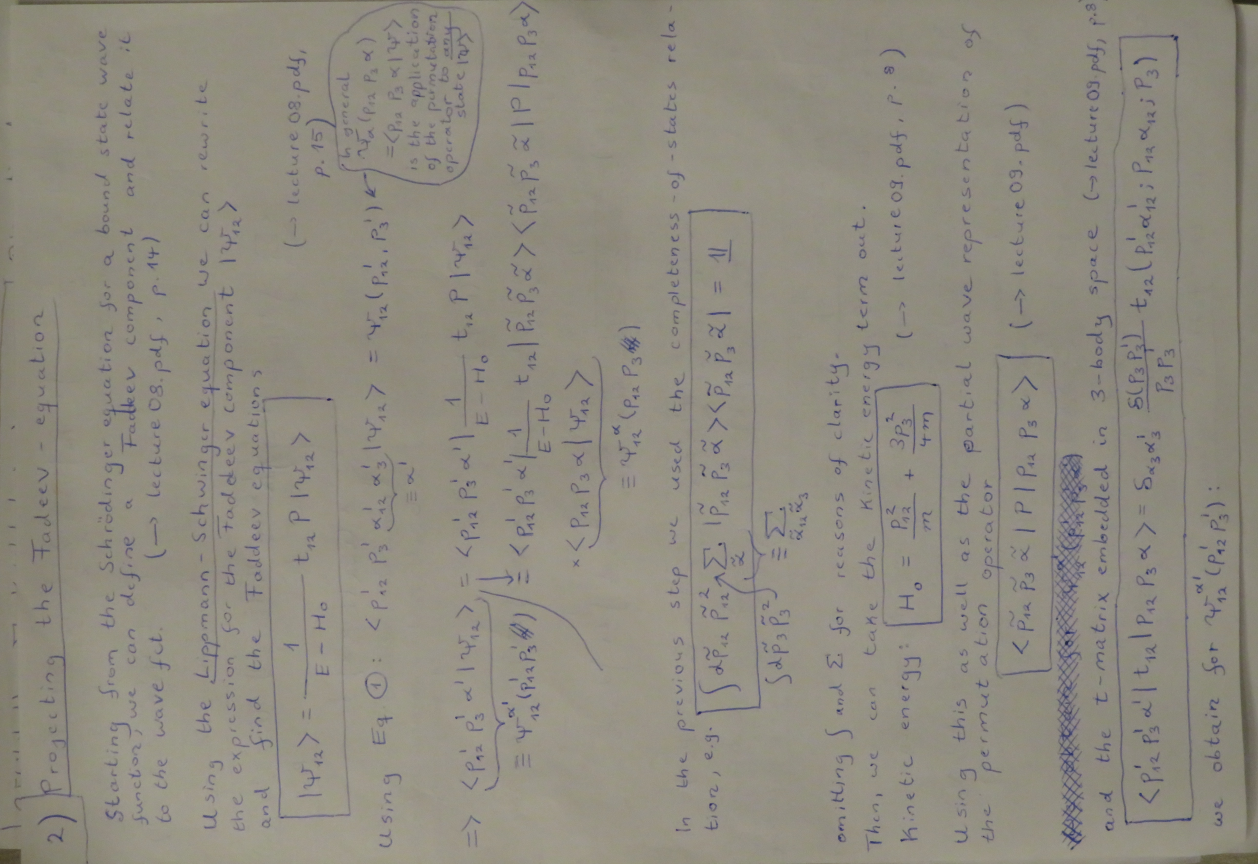 2) Projecting the Fadeev-equation
Starting from the Schrödinger equation for a bound state wave
function, we can define a Fadeev component and relate it
to the wave fct. (→ lecture 08.pdf, p. 14)
Using the Lippmann-Schwinger equation we can rewrite
the expression for the Faddeev component |Ψ12>
and find the Faddeev equations
(→ lecture 08.pdf,
p. 15)
|Ψ12> = 1/(E - H0) t12 P |Ψ12>
In general
Ψα(p12 p3 α)
= <p12 p3 α|Ψ>
is the application
of the permutation
operator to any
state |Ψ>
Using Eq. ①: <p12' p3' α12' α3' |Ψ12> = Ψ12(p12', p3')
≡ α'
=> <p12' p3' α' |Ψ12> = <p12' p3' α'| 1/(E - H0) t12 P |Ψ12>
≡ Ψ12^α'(p12' p3') = <p12' p3' α'| 1/(E-H0) t12 | p̃12 p̃3 α̃ > < p̃12 p̃3 α̃ |P| p12 p3 α>
× <p12 p3 α|Ψ12>
≡ Ψ12^α(p12 p3)
In the previous step we used the completeness-of-states rela-
tion, e.g. ∫dp̃12 p̃12² Σ_α̃ |p̃12 p̃3 α̃ > < p̃12 p̃3 α̃ | = 1
∫dp̃3 p̃3² ≡ Σ_α̃12 α̃3
omitting ∫ and Σ for reasons of clarity.
Then, we can take the kinetic energy term out.
Kinetic energy: H0 = p12²/m + 3p3²/4m (→ lecture 09.pdf, p. 8)
Using this as well as the partial wave representation of
the permutation operator
<p̃12 p̃3 α̃ | P | p12 p3 α > (→ lecture 09.pdf)
and the t-matrix embedded in 3-body space (→ lecture 09.pdf, p.8)
<p12' p3' α' | t12 | p12 p3 α> = δα3α3' δ(p3 p3')/(p3 p3) t12(p12' α12'; p12 α12; p3)
we obtain for Ψ12^α'(p12' p3'):